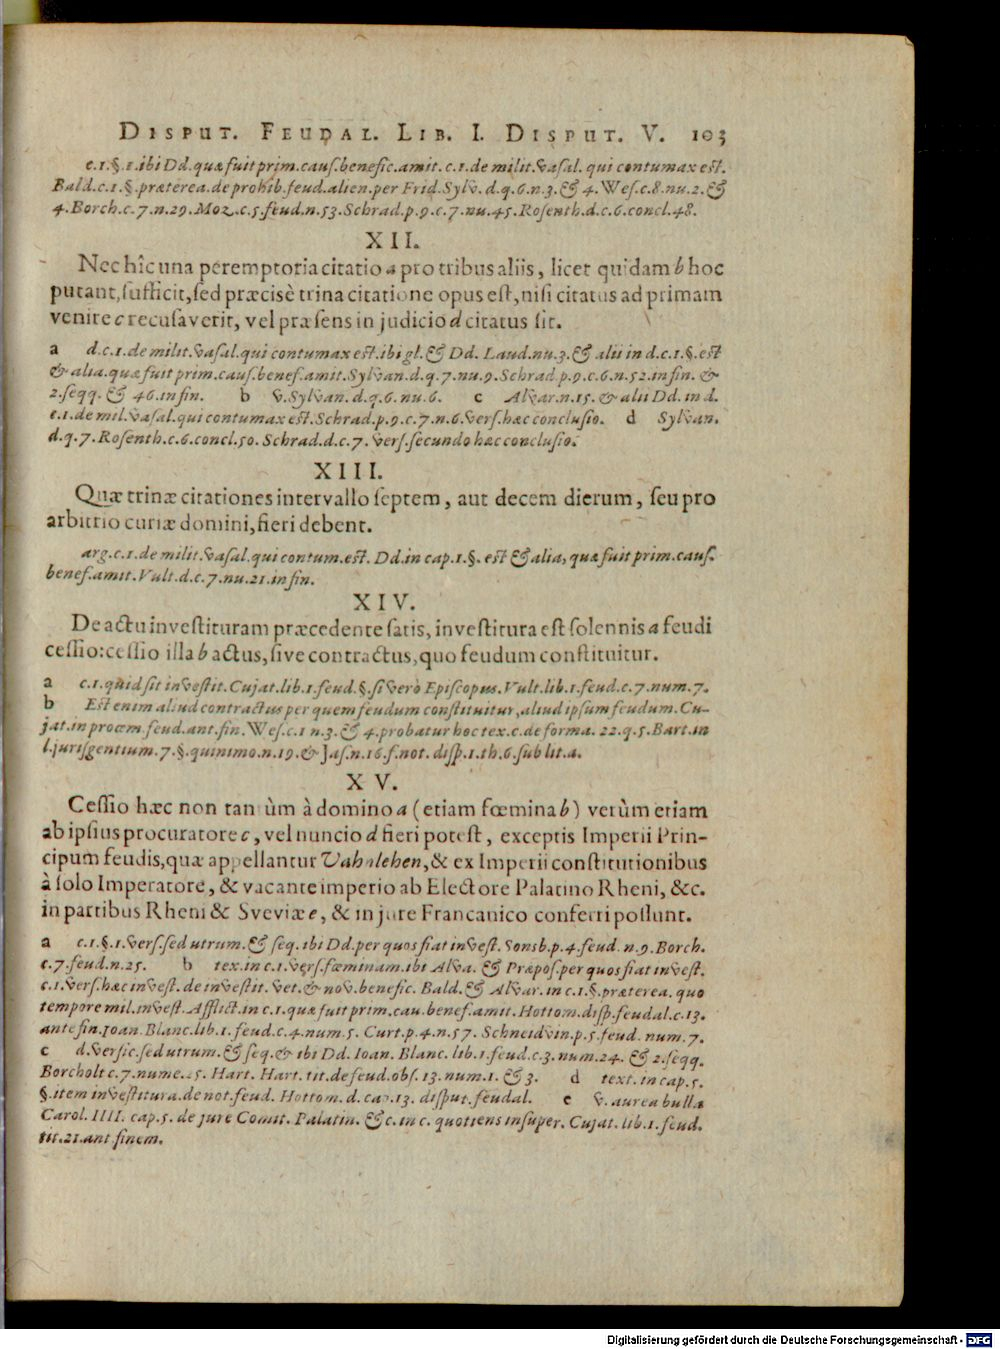 DISPUT. FEUDAL. LIB. I. DISPUT. V. 103
c.1.§.1.ibi Dd.quæ fuit prim.caus.benefic.amit. c.1.de milit.vasal. qui contumax est.
Bald.c.1.§.præterea.de prohib.feud.alien.per Frid.Sylv. d.q.6.n.3.& 4. Wes.c.8.nu.2.&
4.Borch.c.7.n.29.Moz.c.5.feud.n.53.Schrad.p.9.c.7.nu.45.Rosenth.d.c.6.concl.48.
XII.
Nec hîc una peremptoria citatio a pro tribus aliis, licet quidam b hoc
putant, sufficit, sed præcisè trina citatione opus est, nisi citatus ad primam
venire c recusaverit, vel præsens in judicio d citatus sit.
a d.c.1.de milit.vasal.qui contumax est.ibi gl.& Dd. Laud.nu.3.& alii in d.c.1.§.est
& alia.quæ fuit prim.caus.benef.amit.Sylvan.d.q.7.nu.9.Schrad.p.9.c.6.n.52.in fin. &
2.seqq. & 46.in fin. b v.Sylvan.d.q.6.nu.6. c Alvar.n.15.& alii Dd. in d.
c.1.de mil.vasal.qui contumax est.Schrad.p.9.c.7.n.6.vers.hæc conclusio. d Sylvan.
d.q.7.Rosenth.c.6.concl.50. Schrad.d.c.7. vers.secundo hæc conclusio.
XIII.
Quæ trinæ citationes intervallo septem, aut decem dierum, seu pro
arbitrio curiæ domini, fieri debent.
arg.c.1.de milit.vasal.qui contum.est. Dd.in cap.1.§. est & alia, quæ fuit prim.caus.
benef.amit. Vult.d.c.7.nu.21.in fin.
XIV.
De actu investituram præcedente satis, investitura est solennis a feudi
cessio: cessio illa b actus, sive contractus, quo feudum constituitur.
a c.1.quid sit investit.Cujat.lib.1.feud.§.si verò Episcopus.Vult.lib.1.feud.c.7.num.7.
b Est enim aliud contractus per quem feudum constituitur, aliud ipsum feudum. Cu-
jat.in proœm.feud.ant.fin.Wes.c.1 n.3.& 4.probatur hoc tex.c.de forma. 22.q.5.Bart.in
l.jurisgentium.7.§.quinimo.n.19.& Jas.n.16.f.not. disp.1.th.6.sub lit.a.
XV.
Cessio hæc non tan ùm à domino a (etiam fœmina b) verùm etiam
ab ipsius procuratore c, vel nuncio d fieri potest, exceptis Imperii Prin-
cipum feudis, quæ appellantur Vahnlehen, & ex Imperii constitutionibus
à solo Imperatore, & vacante imperio ab Electore Palatino Rheni, &c.
in partibus Rheni & Sveviæ e, & in jure Francanico conferri possunt.
a c.1.§.1.vers.sed utrum.& seq. ibi Dd.per quos fiat invest. Sonsb.p.4.feud. n.9.Borch.
c.7.feud.n.25. b tex.in c.1.vers.fœminam.ibi Alva. & Præpos.per quos fiat invest.
c.1.vers.hæc invest. de investit. vet.& nov.benefic. Bald.& Alvar. in c.1.§.præterea. quo
tempore mil.invest. Afflict.in c.1.quæ fuit prim.cau.benef.amit.Hottom.disp.feudal.c.13.
ante fin.Ioan.Blanc.lib.1.feud.c.4.num.5. Curt.p.4.n.57. Schneidvin.p.5.feud. num.7.
c d.versic.sed utrum.& seq.& ibi Dd. Ioan. Blanc. lib.1.feud.c.3.num.24. & 2.seqq.
Borcholt c.7.nume..5. Hart. Hart. tit.de feud.obs.13.num.1.& 3. d text. in cap.5.
§.item investitura.de not.feud. Hottom.d.cap.13. disput.feudal. e v.aurea bulla
Carol. IIII. cap.5. de jure Comit. Palatin. & c. in c. quotiens insuper. Cujat. lib.1.feud.
tit.21.ant finem.
Digitalisierung gefördert durch die Deutsche Forschungsgemeinschaft - DFG